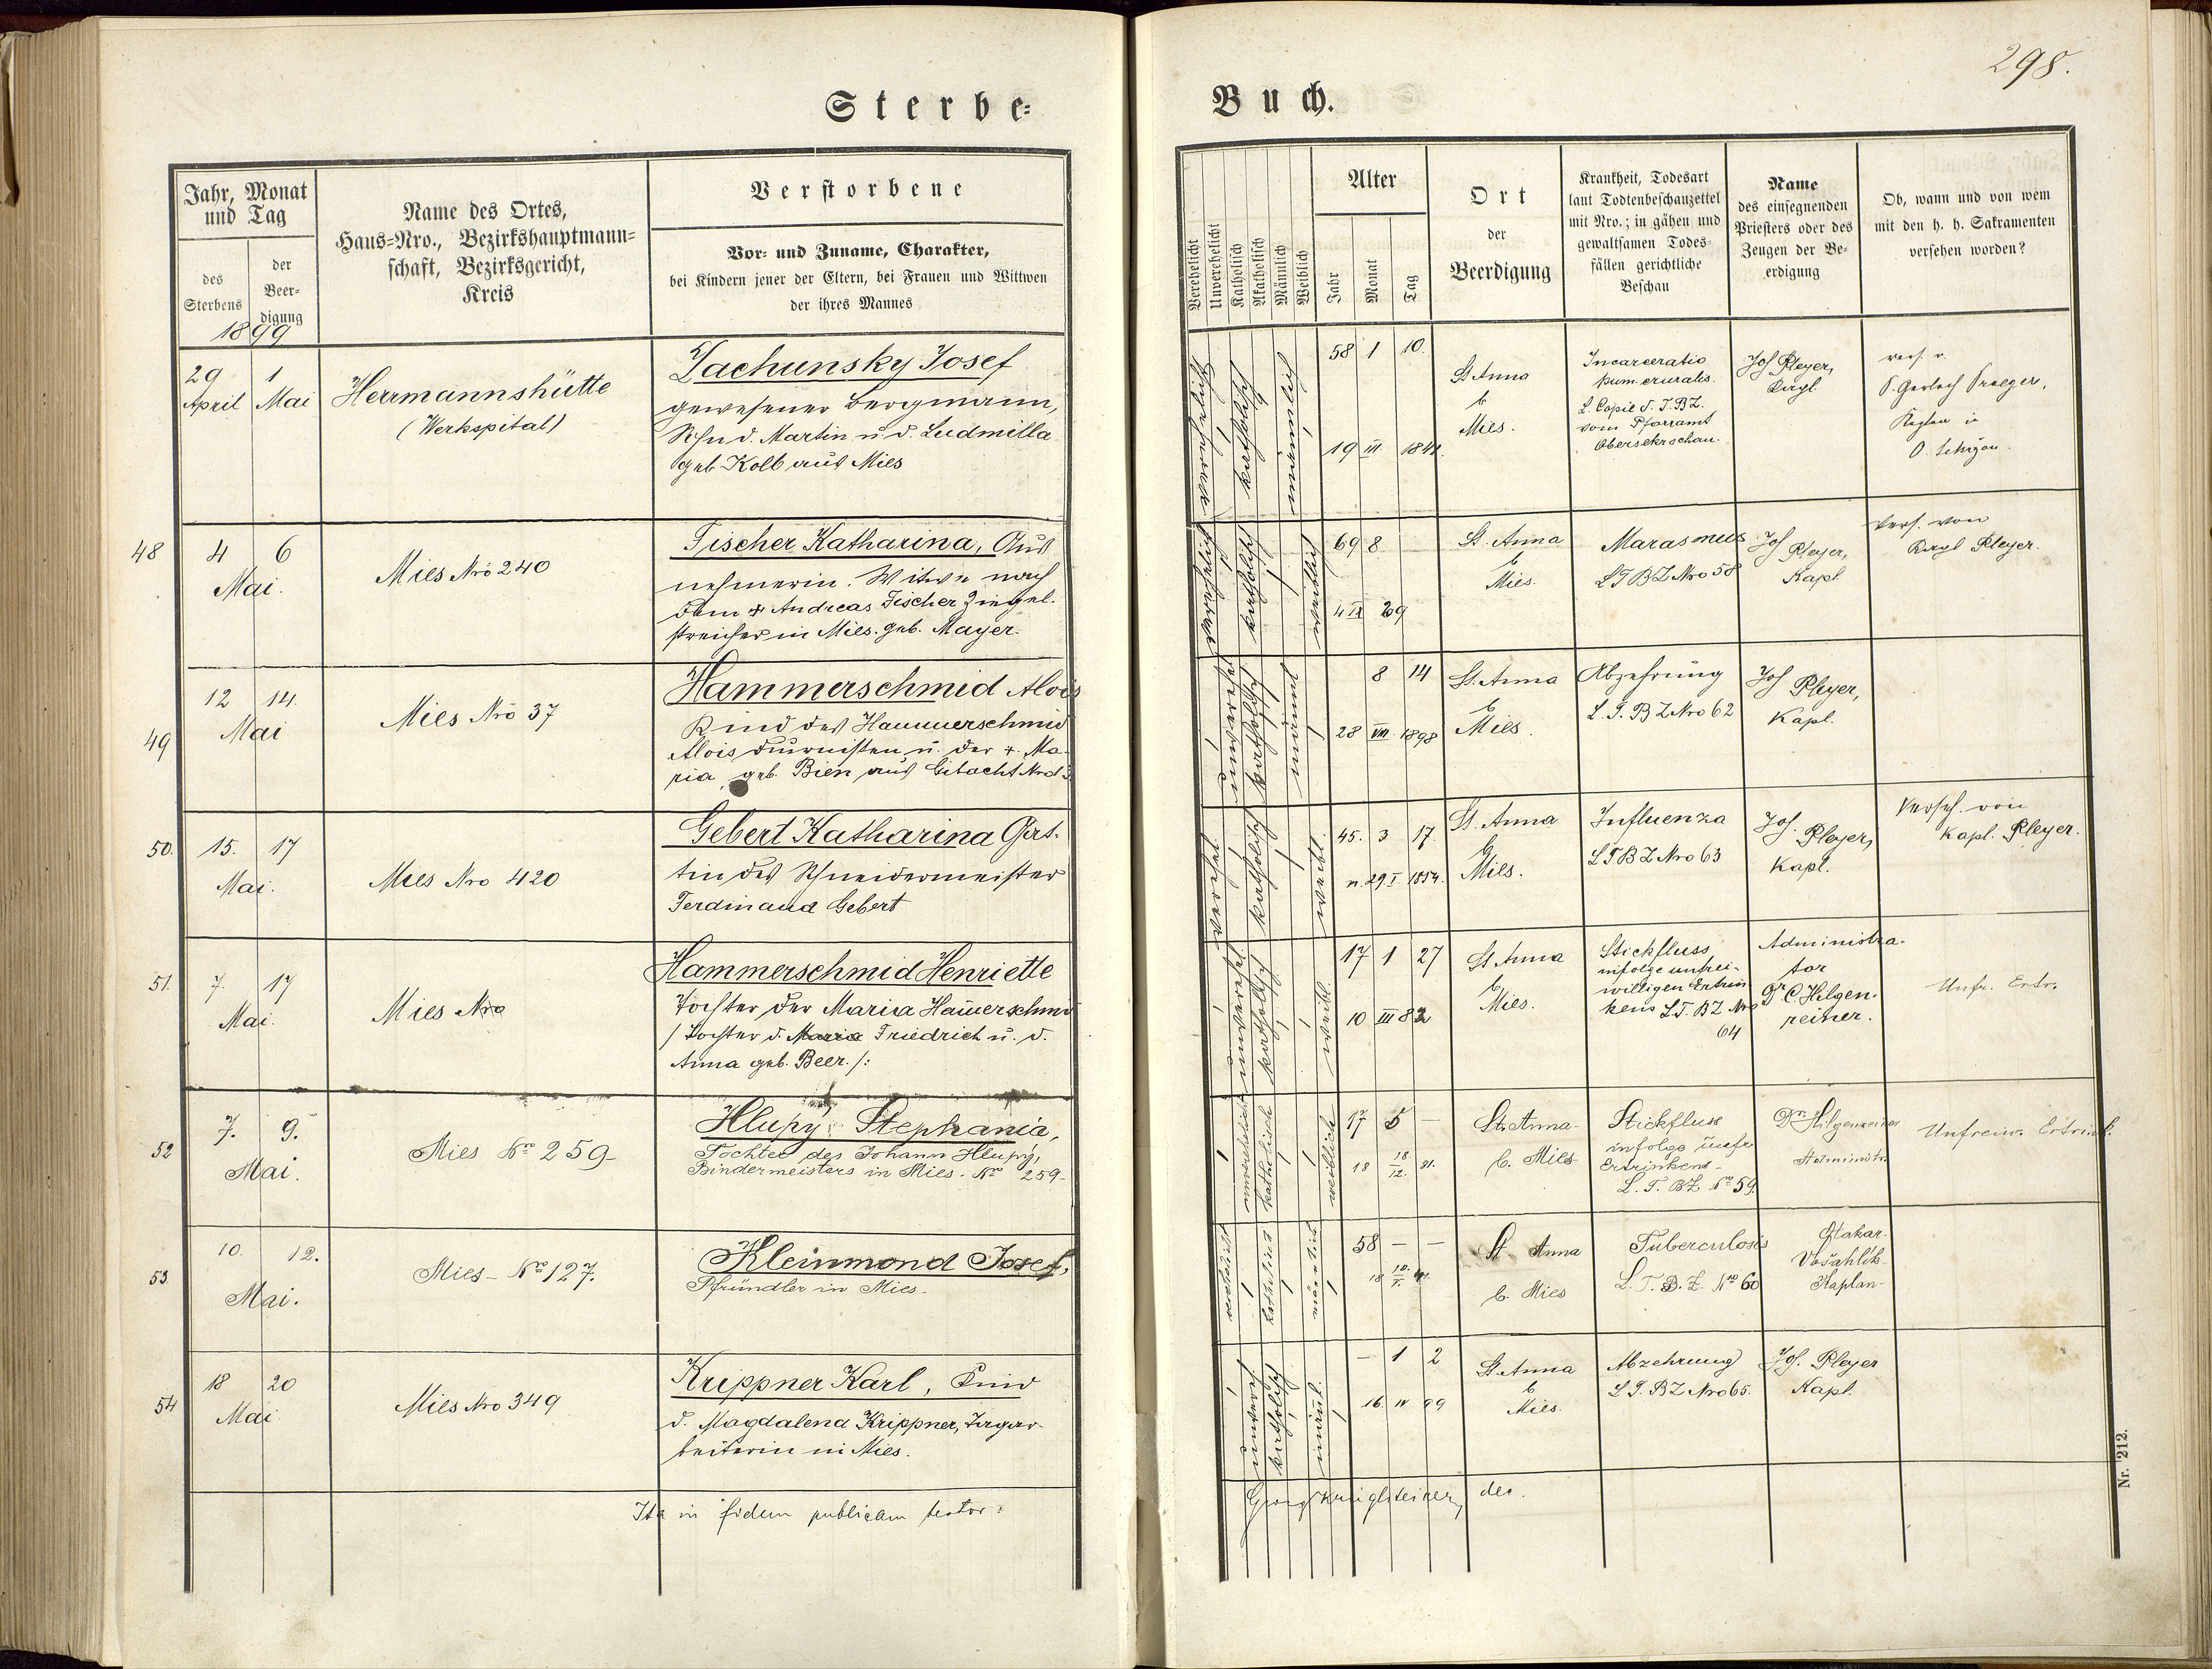 298.
Sterbe-
Buch.
Jahr, Monat
und Tag
des
Sterbens
der
Beer-
digung
1899
Name des Ortes,
Haus-Nro., Bezirkshauptmann-
schaft, Bezirksgericht,
Kreis
Verstorbene
Vor- und Zuname, Charakter,
bei Kindern jener der Eltern, bei Frauen und Wittwen
der ihres Mannes
Verehelicht
Unverehelicht
Katholisch
Akatholisch
Männlich
Weiblich
Alter
Jahr
Monat
Tag
Ort
der
Beerdigung
Krankheit, Todesart
laut Todtenbeschauzettel
mit Nro.; in gähen und
gewaltsamen Todes-
fällen gerichtliche
Beschau
Name
des einsegnenden
Priesters oder des
Zeugen der Be-
erdigung
Ob, wann und von wem
mit den h. h. Sakramenten
versehen worden?
29 1
April Mai
Herrmannshütte
(Werkspital)
Lachunsky Josef
gewesener Bergmann,
Sohn d. Martin u. d. Ludmilla
geb. Kolb aus Mies
katholisch
männlich
58 1 10.
19 III 1841.
St Anna
b
Mies.
Incarceratio
L. Copie d. T.B.Z.
vom Pfarramt
Jos Pleyer,
vers. v.
P. Gerlach
48
4 6
Mai.
Mies Nro 240
Fischer Katharina, Aus
nehmerin. Witwe nach
dem + Andreas Fischer Ziegel-
streicher in Mies. geb. Mayer.
katholisch
weiblich
69 8
4 IX 29
St. Anna
b
Mies.
Marasmus
LTBZ Nro 58
Jos Pleyer,
Kapl
Vers. von
Kapl Pleyer.
49
12 14.
Mai
Mies Nro 37
Hammerschmid Alois
Kind des Hammerschmid
Alois Durnisten u. der +. Ma-
ria, geb. Bien aus
katholisch
männl
8 14
28 VIII 1898
St. Anna
b
Mies.
Abzehrung
L.T.BZ Nro 62
Jos Pleyer,
Kapl.
50.
15. 17
Mai.
Mies Nro 420
Gebert Katharina Gat-
tin des Schneidermeister
Ferdinand Gebert
katholisch
weibl.
45. 3 17.
n. 29. I. 1854.
St. Anna
b
Mies.
Influenza
LTBZ Nro 63
Jos. Pleyer,
Kapl.
Verseh. von
Kapl. Pleyer.
51.
7. 17
Mai.
Mies Nro
Hammerschmid Henriette
Tochter der Maria Hammerschmid
/ Tochter d. Friedrich u. d.
Anna geb. Beer./:
unverehel.
katholisch
weibl.
17 1 27
10 III 82
St Anna
b
Mies.
Stickfluss
infolge unfrei-
willigen Ertrin
kens LT. BZ Nro
64
Administra-
tor
Dr C. Hilgen-
reiner.
Unfr. Ertr.
52
7. 9.
Mai.
Mies Nro 259-
Hlupy Stephania,
Tochter des Johann Hlupy,
Bindermeisters in Mies. Nro 259-
unverehelicht
katholisch
weiblich
17 5 -
18 18/12. 81.
St. Anna-
b. Mies
Stickfluss
infolge unfr
Ertrinkens-
L. T. BZ. Nro 59.
Dr. Hilgenreiner
Administr.
Unfreiw. Ertrink.
53
10. 12.
Mai.
Mies- Nro 127.
Kleinmond Josef,
Pfründler in Mies-
männlich
58 - -
18 10./5. 41.
St Anna
b. Mies
Tuberculosis
L. T. B. Z. Nro 60
Otakar
Kaplan-
54
18 20
Mai
Mies Nro 349
Krippner Karl, Kind
d. Magdalena Krippner, Tagar-
beiterin in Mies.
unvereh
katholisch
männl.
- 1 2
16. IV 99
St Anna
b
Mies.
Abzehrung
LT. BZ Nro 65.
Jos. Pleyer
Kapl.
Ita in fidem publicam testor:
Georg dec.
Nr. 212.